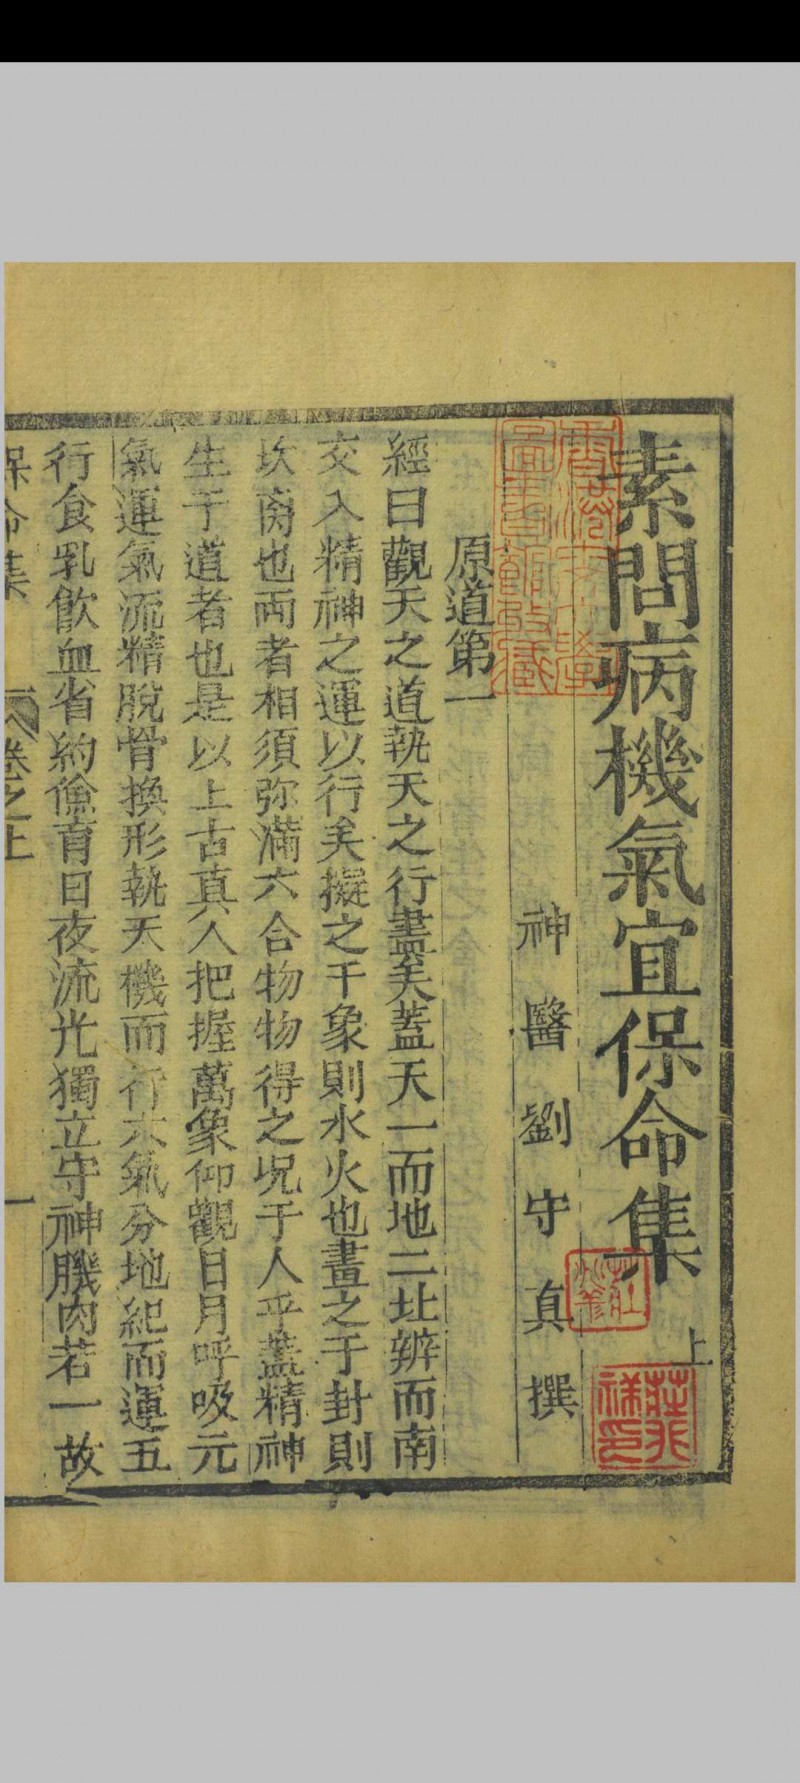 素問病機氣宜保命集 上
神醫劉守真撰
原道第一
經曰觀天之道執天之行盡矣蓋天一而地二北辨而南
交入精神之運以行矣擬之于象則水火也畫之于封則
坎离也两者相須弥滿六合物物得之况于人乎蓋精神
生于道者也是以上古真人把握萬象仰觀日月呼吸元
氣運氣流精脫骨換形執天機而行六氣分地紀而運五
行食乳飲血省約儉育日夜流光獨立守神肌肉若一故
保命集 卷之上 一